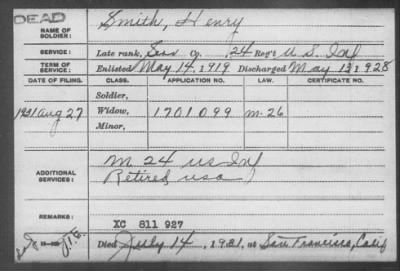 DEAD
NAME OF SOLDIER: Smith, Henry
SERVICE: Late rank, Serv Co., 24 Reg't U.S. Inf
TERM OF SERVICE: Enlisted May 14, 1919 Discharged May 13 1928
DATE OF FILING. CLASS. APPLICATION NO. LAW. CERTIFICATE NO.
Soldier,
1931 Aug 27 Widow, 1701099 m-26
Minor,
ADDITIONAL SERVICES: M 24 US Inf
Retired usa
REMARKS: XC 811 927
Died July 14, 1931, at San Francisco, Calif